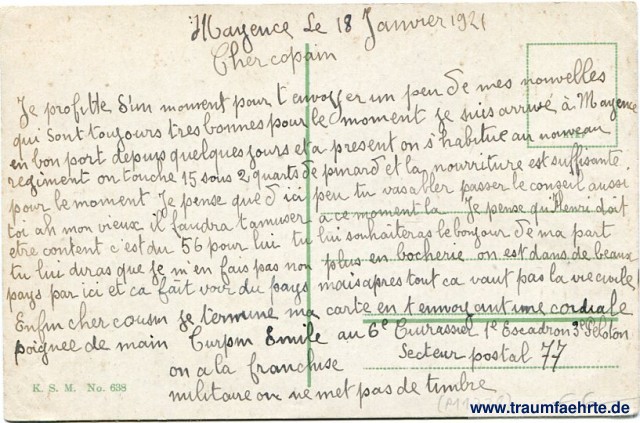 Mayence Le 18 Janvier 1921
Cher copain
Je profitte d'un moment pour t'envoyer un peu de mes nouvelles
qui sont toujours tres bonnes pour le moment je suis arrivé à Mayence
en bon port depuis quelques jours et a present on s'habitue au nouveau
regiment on touche 15 sous 2 quarts de pinard et la nourriture est suffisante
pour le moment Je pense que d'ici peu tu vas aller passer le conseil aussi
toi ah mon vieux il faudra t'amuser a ce moment la Je pense qu'Henri doit
etre content c'est du 56 pour lui tu lui souhaiteras le bonjour de ma part
tu lui diras que je m'en fais pas non plus en bocherie on est dans de beaux
pays par ici et ca fait voir du pays mais apres tout ca vaut pas la vie civile
Enfin cher cousin je termine ma carte en t'envoyant une cordiale
poignee de main Turpin Emile au 6e Cuirassier 1e Escadron 3e Peloton
Secteur postal 77
on a la franchise
militaire on ne met pas de timbre
K. S. M. No. 638
www.traumfaehrte.de